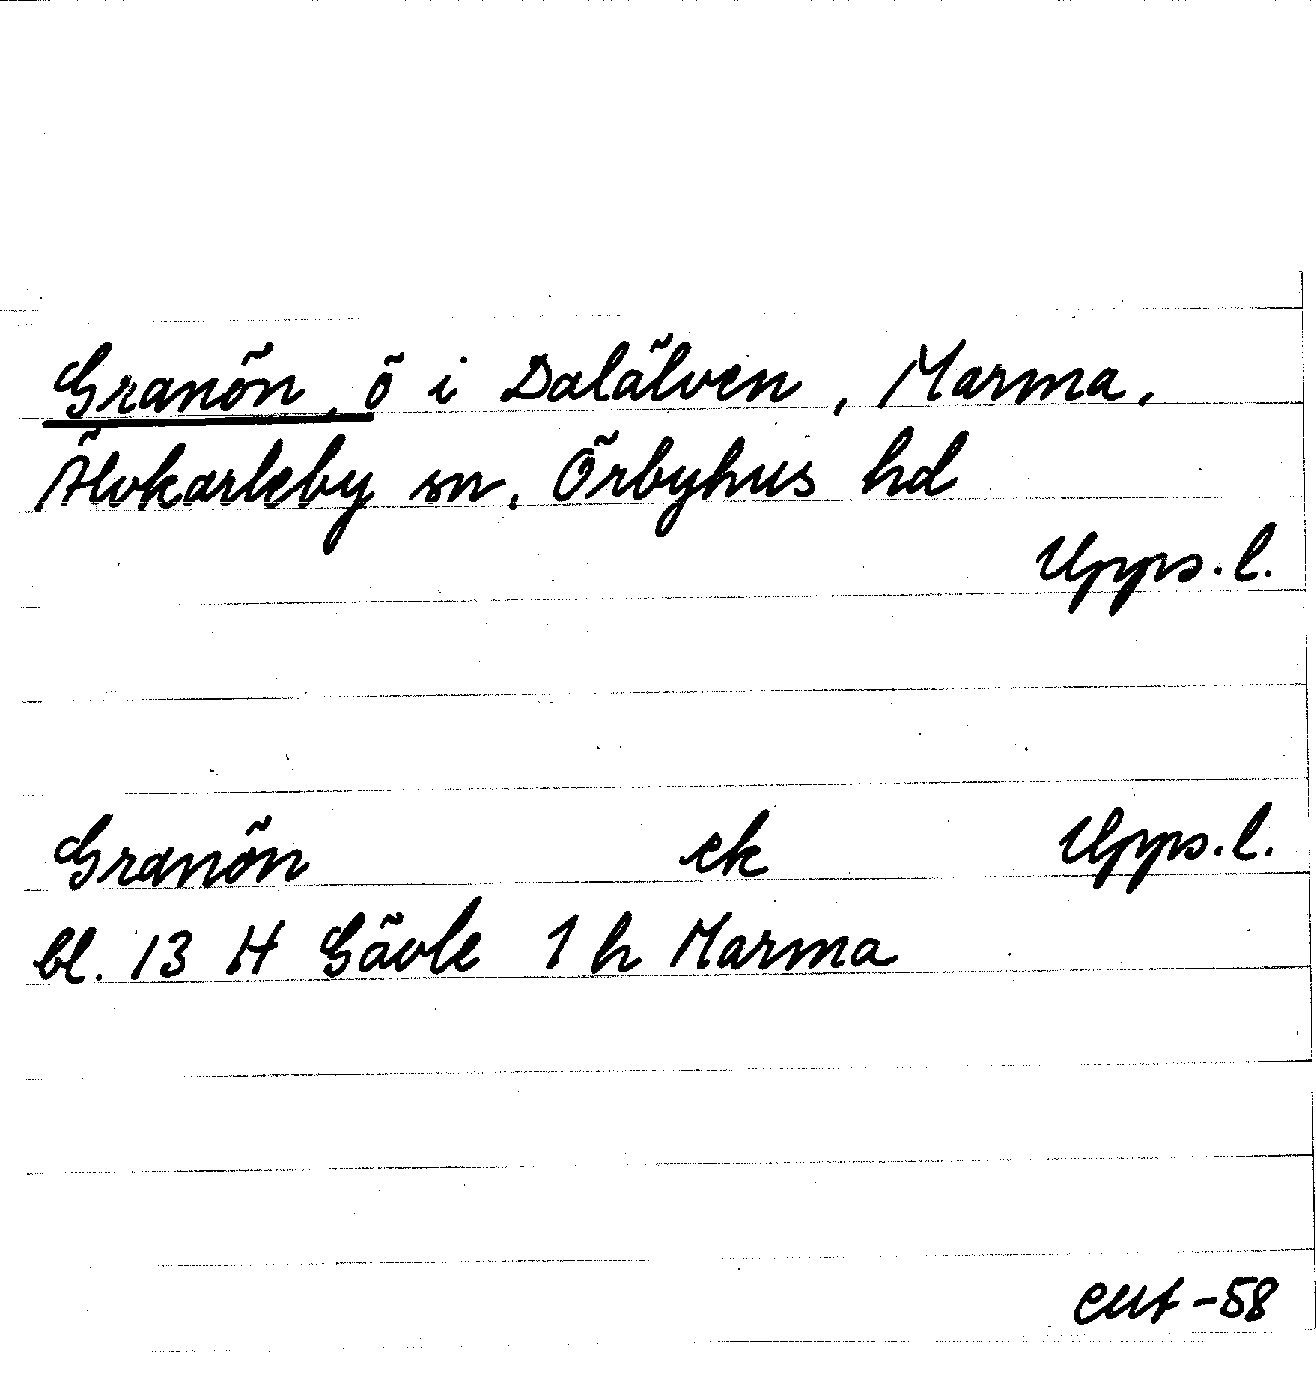 Granön, ö i Dalälven, Marma,
Älvkarleby sn, Örbyhus hd
Upps. l.
Granön ek Upps. l.
bl. 13 H Gävle 1 h Marma
-58